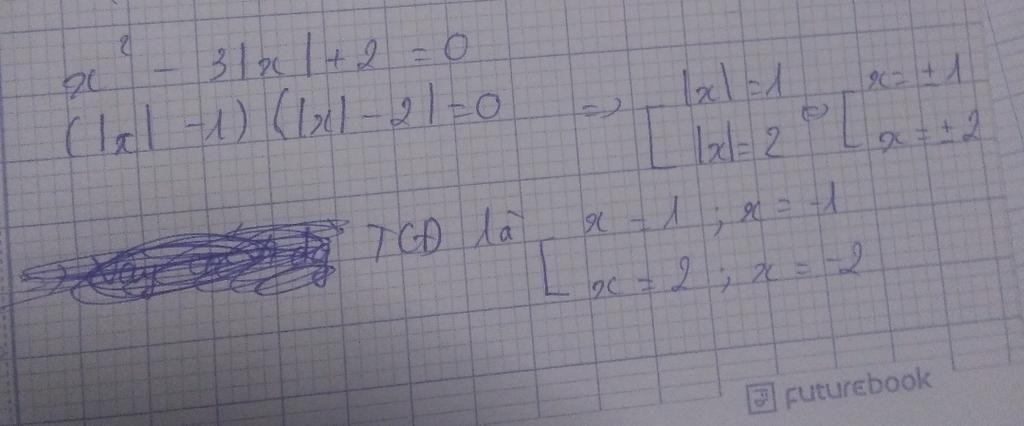 x² - 3|x| + 2 = 0
(|x| - 1) (|x| - 2| = 0 => [ |x| = 1 |x| = 2 <=> [ x = ±1 x = ±2
TCĐ là [ x = 1 ; x = -1 x = 2 ; x = -2
futurebook